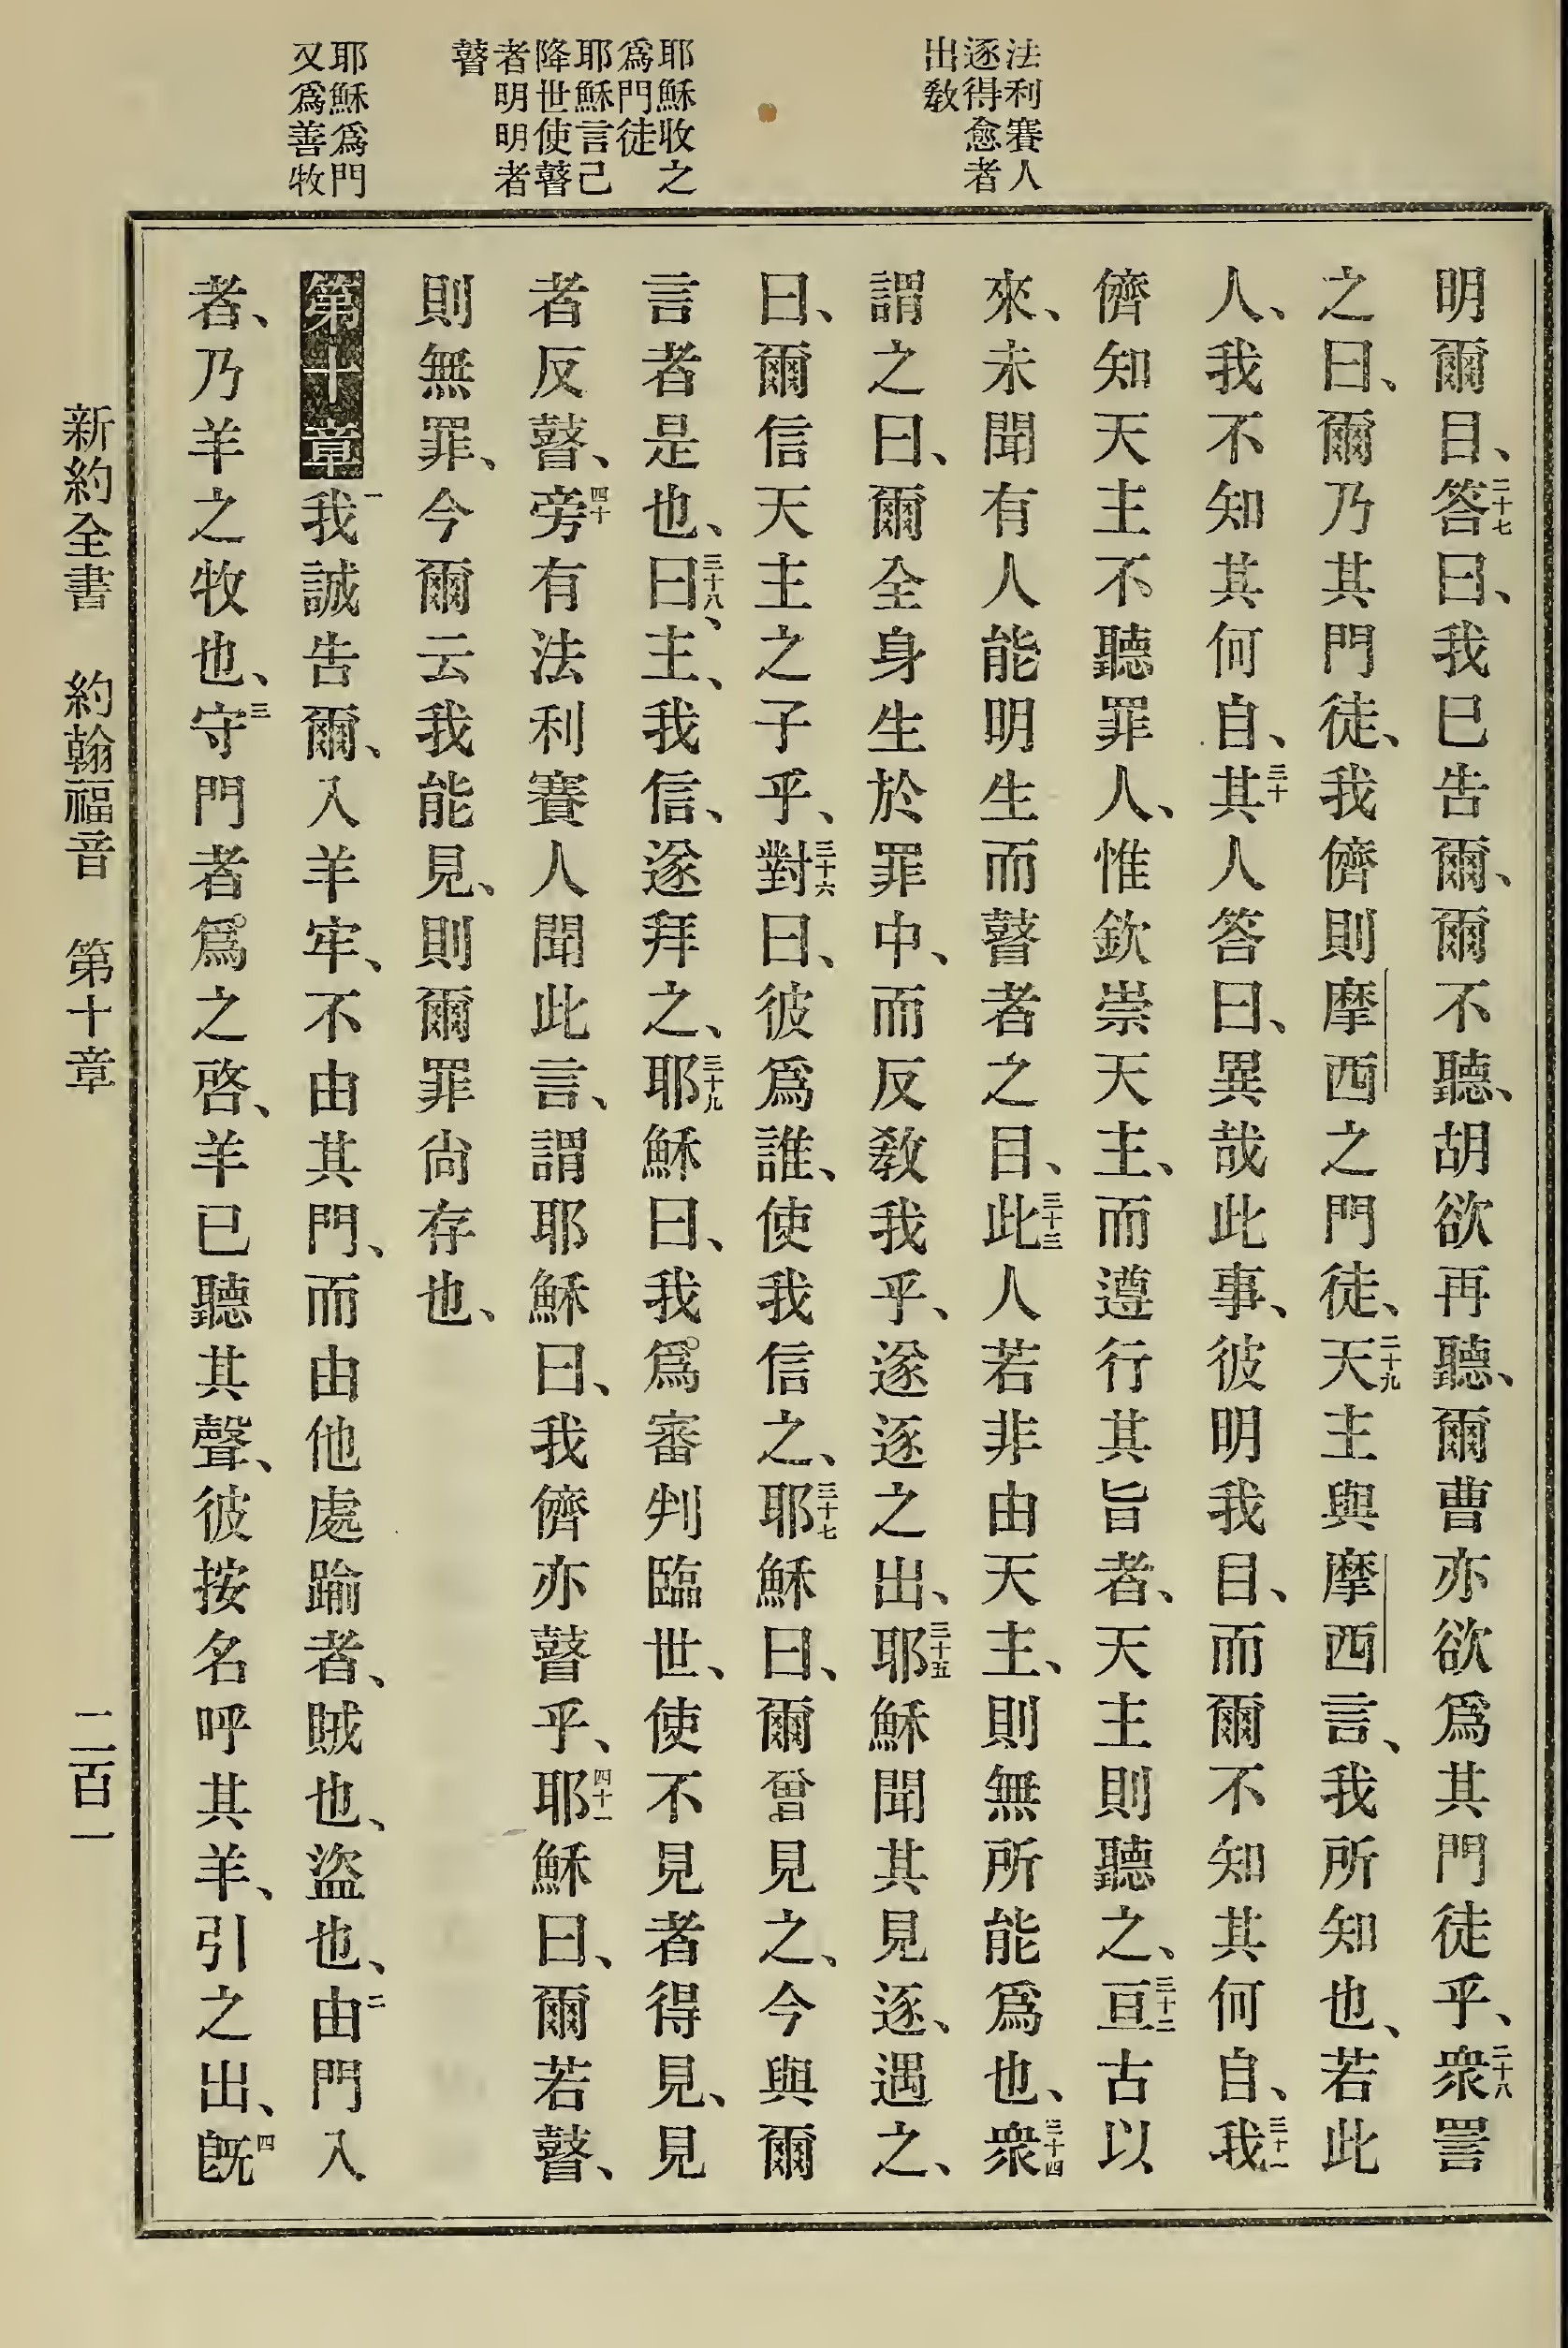 法利賽人
逐得愈者
出敎
耶穌收之
爲門徒
耶穌言己
降世使瞽
者明明者
瞽
耶穌爲門
又爲善牧
明爾目、二十七答曰、我已告爾、爾不聽、胡欲再聽、爾曹亦欲爲其門徒乎、二十八衆詈
之曰、爾乃其門徒、我儕則摩西之門徒、二十九天主與摩西言、我所知也、若此
人、我不知其何自、三十其人答曰、異哉此事、彼明我目、而爾不知其何自、三十一我
儕知天主不聽罪人、惟欽崇天主、而遵行其旨者、天主則聽之、三十二亘古以
來、未聞有人能明生而瞽者之目、三十三此人若非由天主、則無所能爲也、三十四衆
謂之曰、爾全身生於罪中、而反敎我乎、遂逐之出、三十五耶穌聞其見逐、遇之、
曰、爾信天主之子乎、三十六對曰、彼爲誰、使我信之、三十七耶穌曰、爾曾見之、今與爾
言者是也、三十八曰、主、我信、遂拜之、三十九耶穌曰、我爲審判臨世、使不見者得見、見
者反瞽、四十旁有法利賽人聞此言、謂耶穌曰、我儕亦瞽乎、四十一耶穌曰、爾若瞽、
則無罪、今爾云我能見、則爾罪尙存也、
第十章一我誠告爾、入羊牢、不由其門、而由他處踰者、賊也、盜也、二由門入
者、乃羊之牧也、三守門者爲之啓、羊已聽其聲、彼按名呼其羊、引之出、四旣
新約全書 約翰福音 第十章 二百一